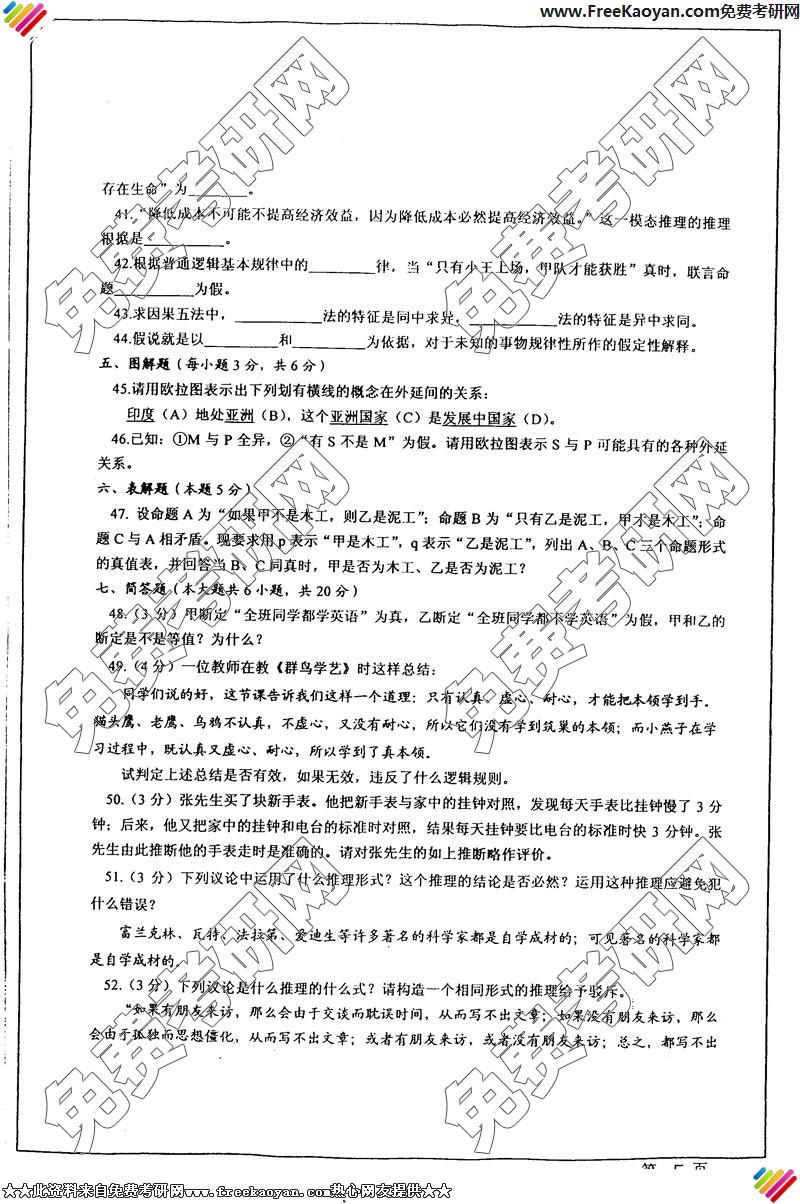 www.FreeKaoyan.com免费考研网
存在生命”为________。
41.“降低成本不可能不提高经济效益，因为降低成本必然提高经济效益。”这一模态推理的推理
根据是___________。
42.根据普通逻辑基本规律中的_________律，当“只有小王上场，甲队才能获胜”真时，联言命
题___________为假。
43.求因果五法中，____________法的特征是同中求异，____________法的特征是异中求同。
44.假说就是以__________和__________为依据，对于未知的事物规律性所作的假定性解释。
五、图解题（每小题3分，共6分）
45.请用欧拉图表示出下列划有横线的概念在外延间的关系：
印度（A）地处亚洲（B），这个亚洲国家（C）是发展中国家（D）。
46.已知：①M与P全异，②“有S不是M”为假。请用欧拉图表示S与P可能具有的各种外延
关系。
六、表解题（本题5分）
47. 设命题A为“如果甲不是木工，则乙是泥工”；命题B为“只有乙是泥工，甲才是木工”；命
题C与A相矛盾。现要求用p表示“甲是木工”，q表示“乙是泥工”，列出A、B、C三个命题形式
的真值表，并回答当B、C同真时，甲是否为木工、乙是否为泥工？
七、简答题（本大题共6小题，共20分）
48.（3分）甲断定“全班同学都学英语”为真，乙断定“全班同学都不学英语”为假，甲和乙的
断定是不是等值？为什么？
49.（4分）一位教师在教《群鸟学艺》时这样总结：
同学们说的好，这节课告诉我们这样一个道理：只有认真、虚心、耐心，才能把本领学到手。
猫头鹰、老鹰、乌鸦不认真，不虚心，又没有耐心，所以它们没有学到筑巢的本领；而小燕子在学
习过程中，既认真又虚心、耐心，所以学到了真本领。
试判定上述总结是否有效，如果无效，违反了什么逻辑规则。
50.（3分）张先生买了块新手表。他把新手表与家中的挂钟对照，发现每天手表比挂钟慢了3分
钟；后来，他又把家中的挂钟和电台的标准时对照，结果每天挂钟要比电台的标准时快3分钟。张
先生由此推断他的手表走时是准确的。请对张先生的如上推断略作评价。
51.（3分）下列议论中运用了什么推理形式？这个推理的结论是否必然？运用这种推理应避免犯
什么错误？
富兰克林、瓦特、法拉第、爱迪生等许多著名的科学家都是自学成材的；可见著名的科学家都
是自学成材的。
52.（3分）下列议论是什么推理的什么式？请构造一个相同形式的推理给予驳斥。
“如果有朋友来访，那么会由于交谈而耽误时间，从而写不出文章；如果没有朋友来访，那么
会由于孤独而思想僵化，从而写不出文章；或者有朋友来访，或者没有朋友来访；总之，都写不出
第 5 页
免费考研网
免费考研网
免费考研网
免费考研网
免费考研网
免费考研网
★★此资料来自免费考研网www.freekaoyan.com热心网友提供★★